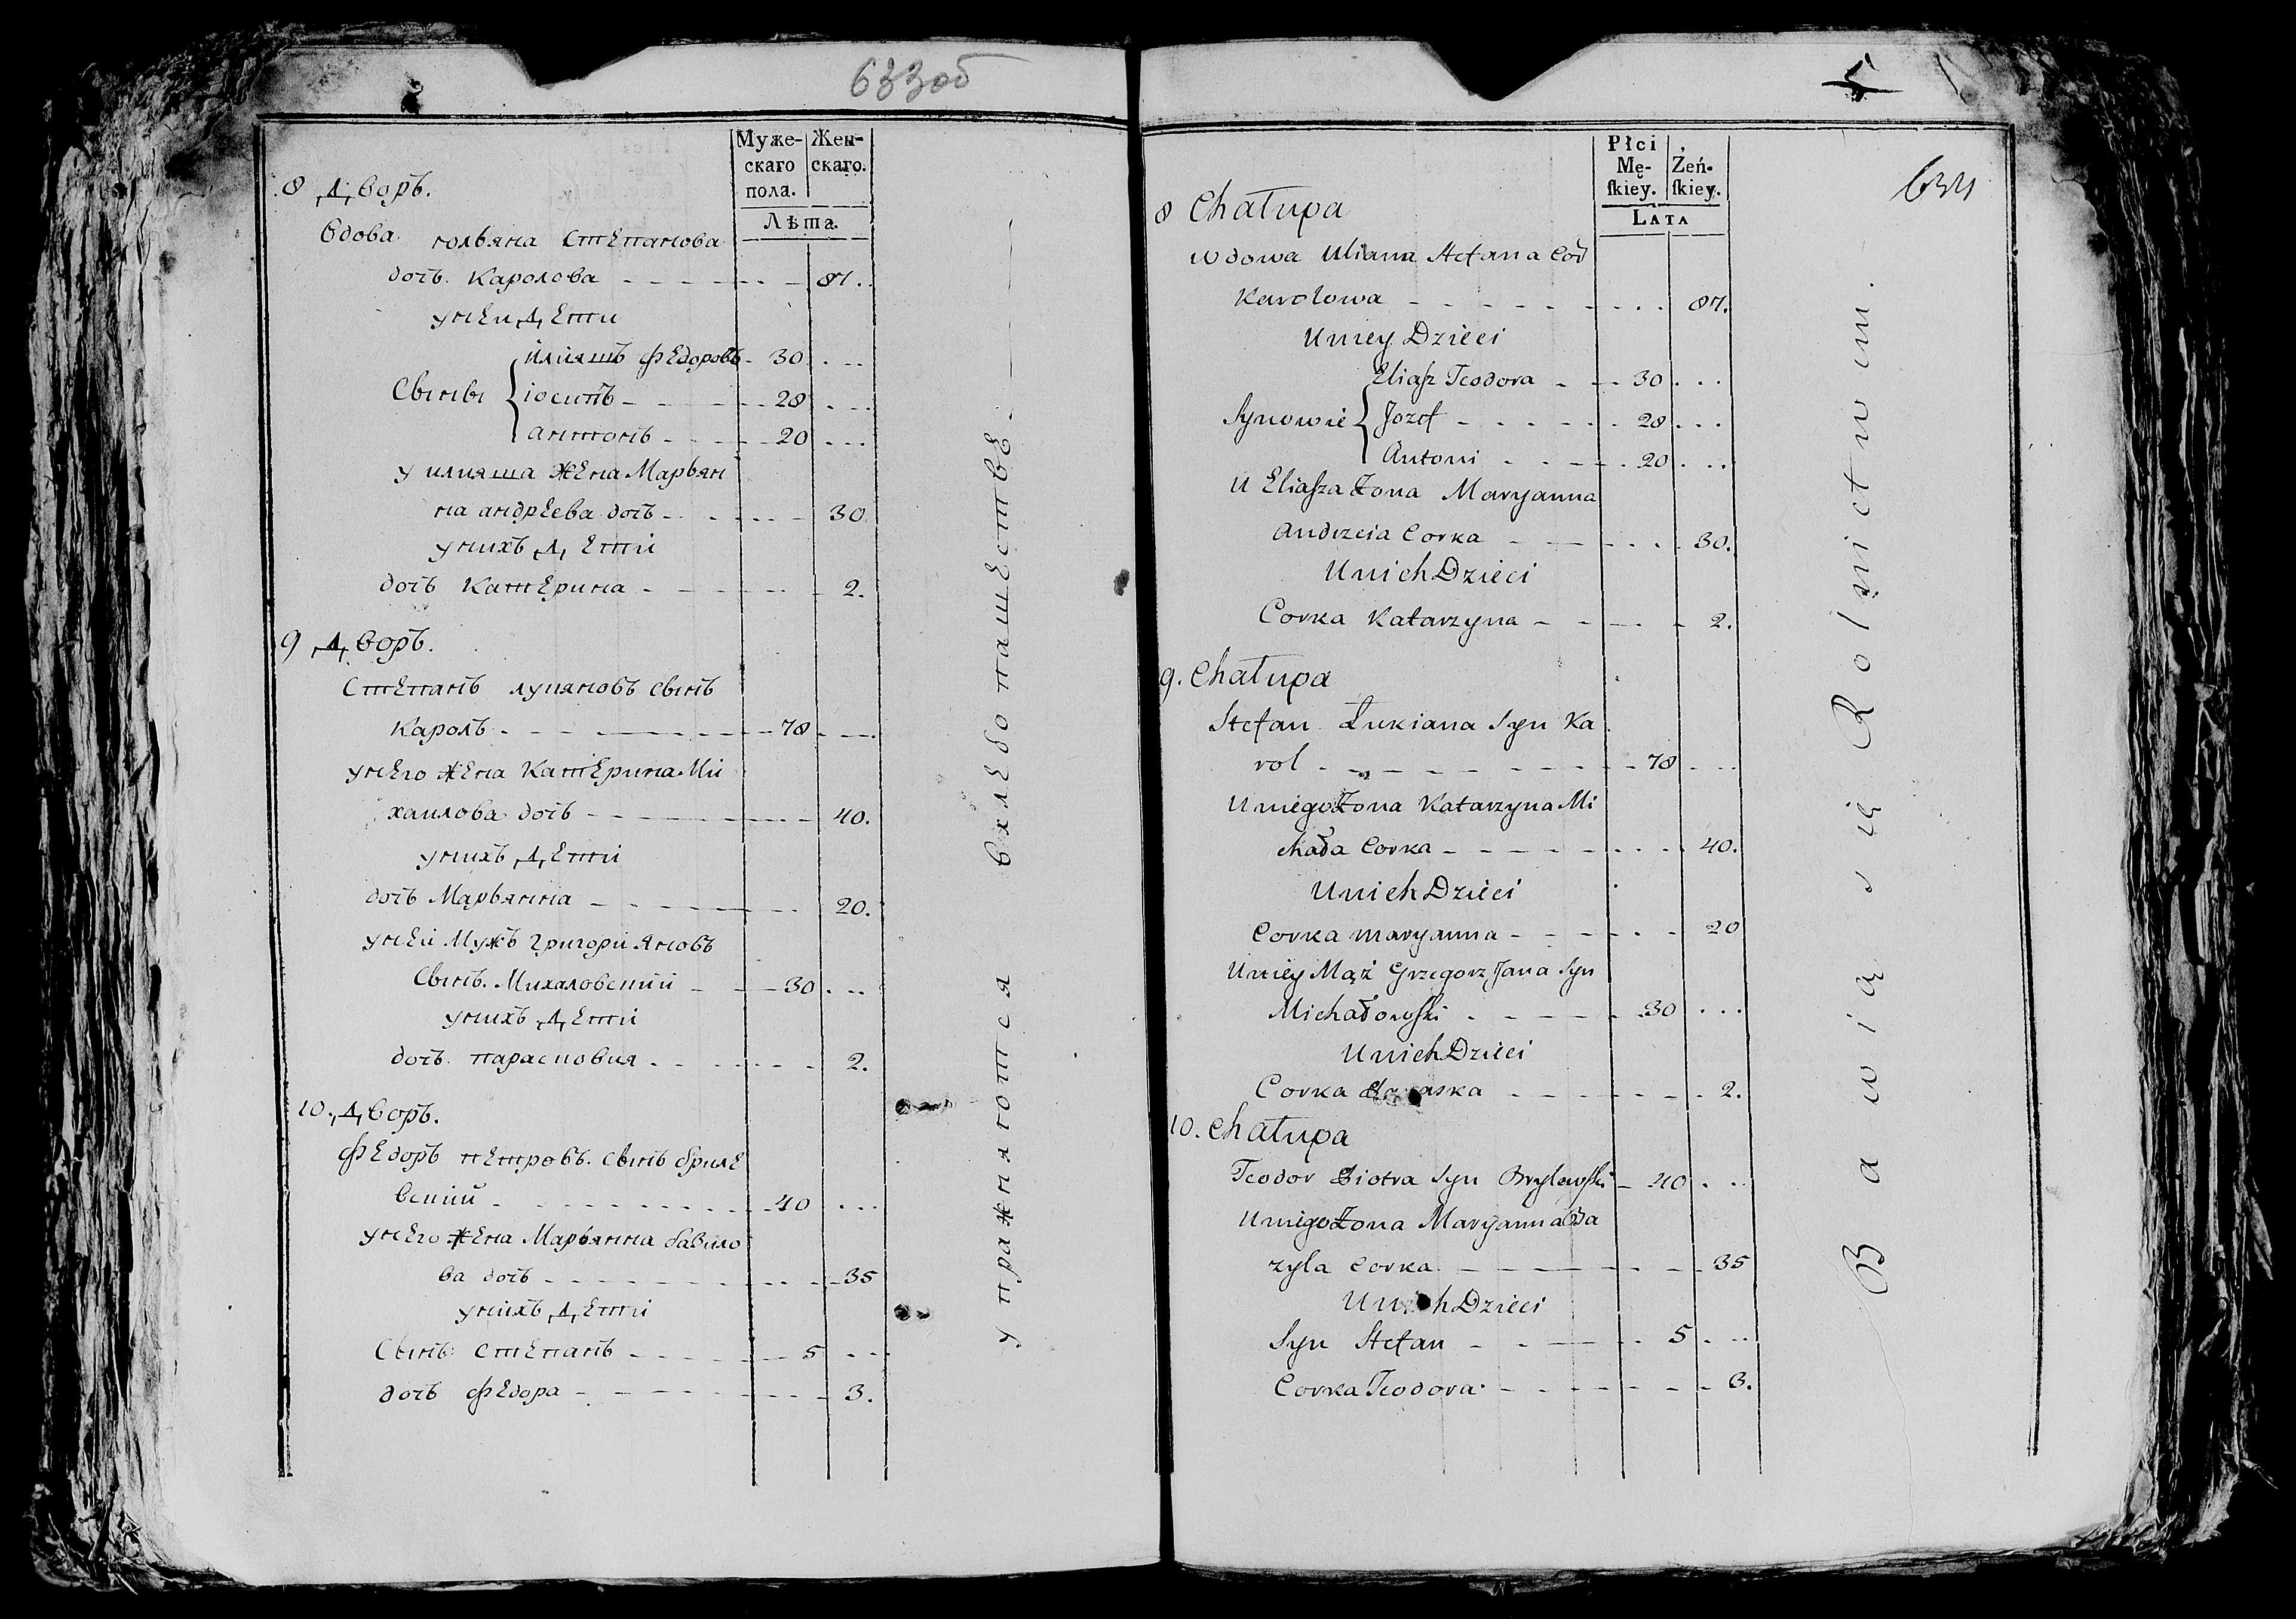 633об
Муже-
скаго
пола.
Жен-
скаго.
Лѣта.
8 Дворъ.
Вдова юльяна Степанова
дочь Каролова 87.
у ней Дети
Сыны
илияшъ Федоровъ 30
іосипъ 28
антонъ 20
у илияша жена Марьян
на андреева дочь 30
у нихъ Дети
дочь Катерина 2.
9 Дворъ.
Степанъ лукяновъ сынъ
Кароль 78
у него жена Катерина Ми
хаилова дочь 40.
у нихъ Дети
дочь Марьянна 20.
у ней Мужъ григори Яновъ
Сынъ Михаловский 30
у нихъ Дети
дочь парасковия 2.
10. Дворъ.
Федоръ петровъ сынъ бриле
вский 40
у него жена Марьянна бавило
ва дочь 35
у нихъ Дети
Сынъ Степанъ 5
дочь Федора 3.
упражняются в хлебопашестве
5
634
Płci
Mę-
ſkiey.
Żeń-
ſkiey.
LATA
8 Chałupa
Wdowa Uliana Stefana Cod
Karolowa 87.
U niey Dzieci
Synowie
Eliaſz Teodora 30
Jozef 28
Antoni 20
U Eliaſza Żona Maryanna
Andrzeia Corka 30.
U nich Dzieci
Corka Katarzyna 2.
9. Chałupa
Stefan Łukiana Syn Ka
rol 78
U niego Żona Katarzyna Mi
chała Corka 40.
U nich Dzieci
Corka Maryanna 20
U niey Mąż Grzegorz Jana Syn
Michałowſki 30
U nich Dzieci
Corka 2.
10. Chałupa
Teodor Piotra Syn Brylewſki 40
U niego Żona Maryanna Ba
zyla Corka 35
U nich Dzieci
Syn Stefan 5
Corka Teodora 3.
Bawią się Rolnictwem.